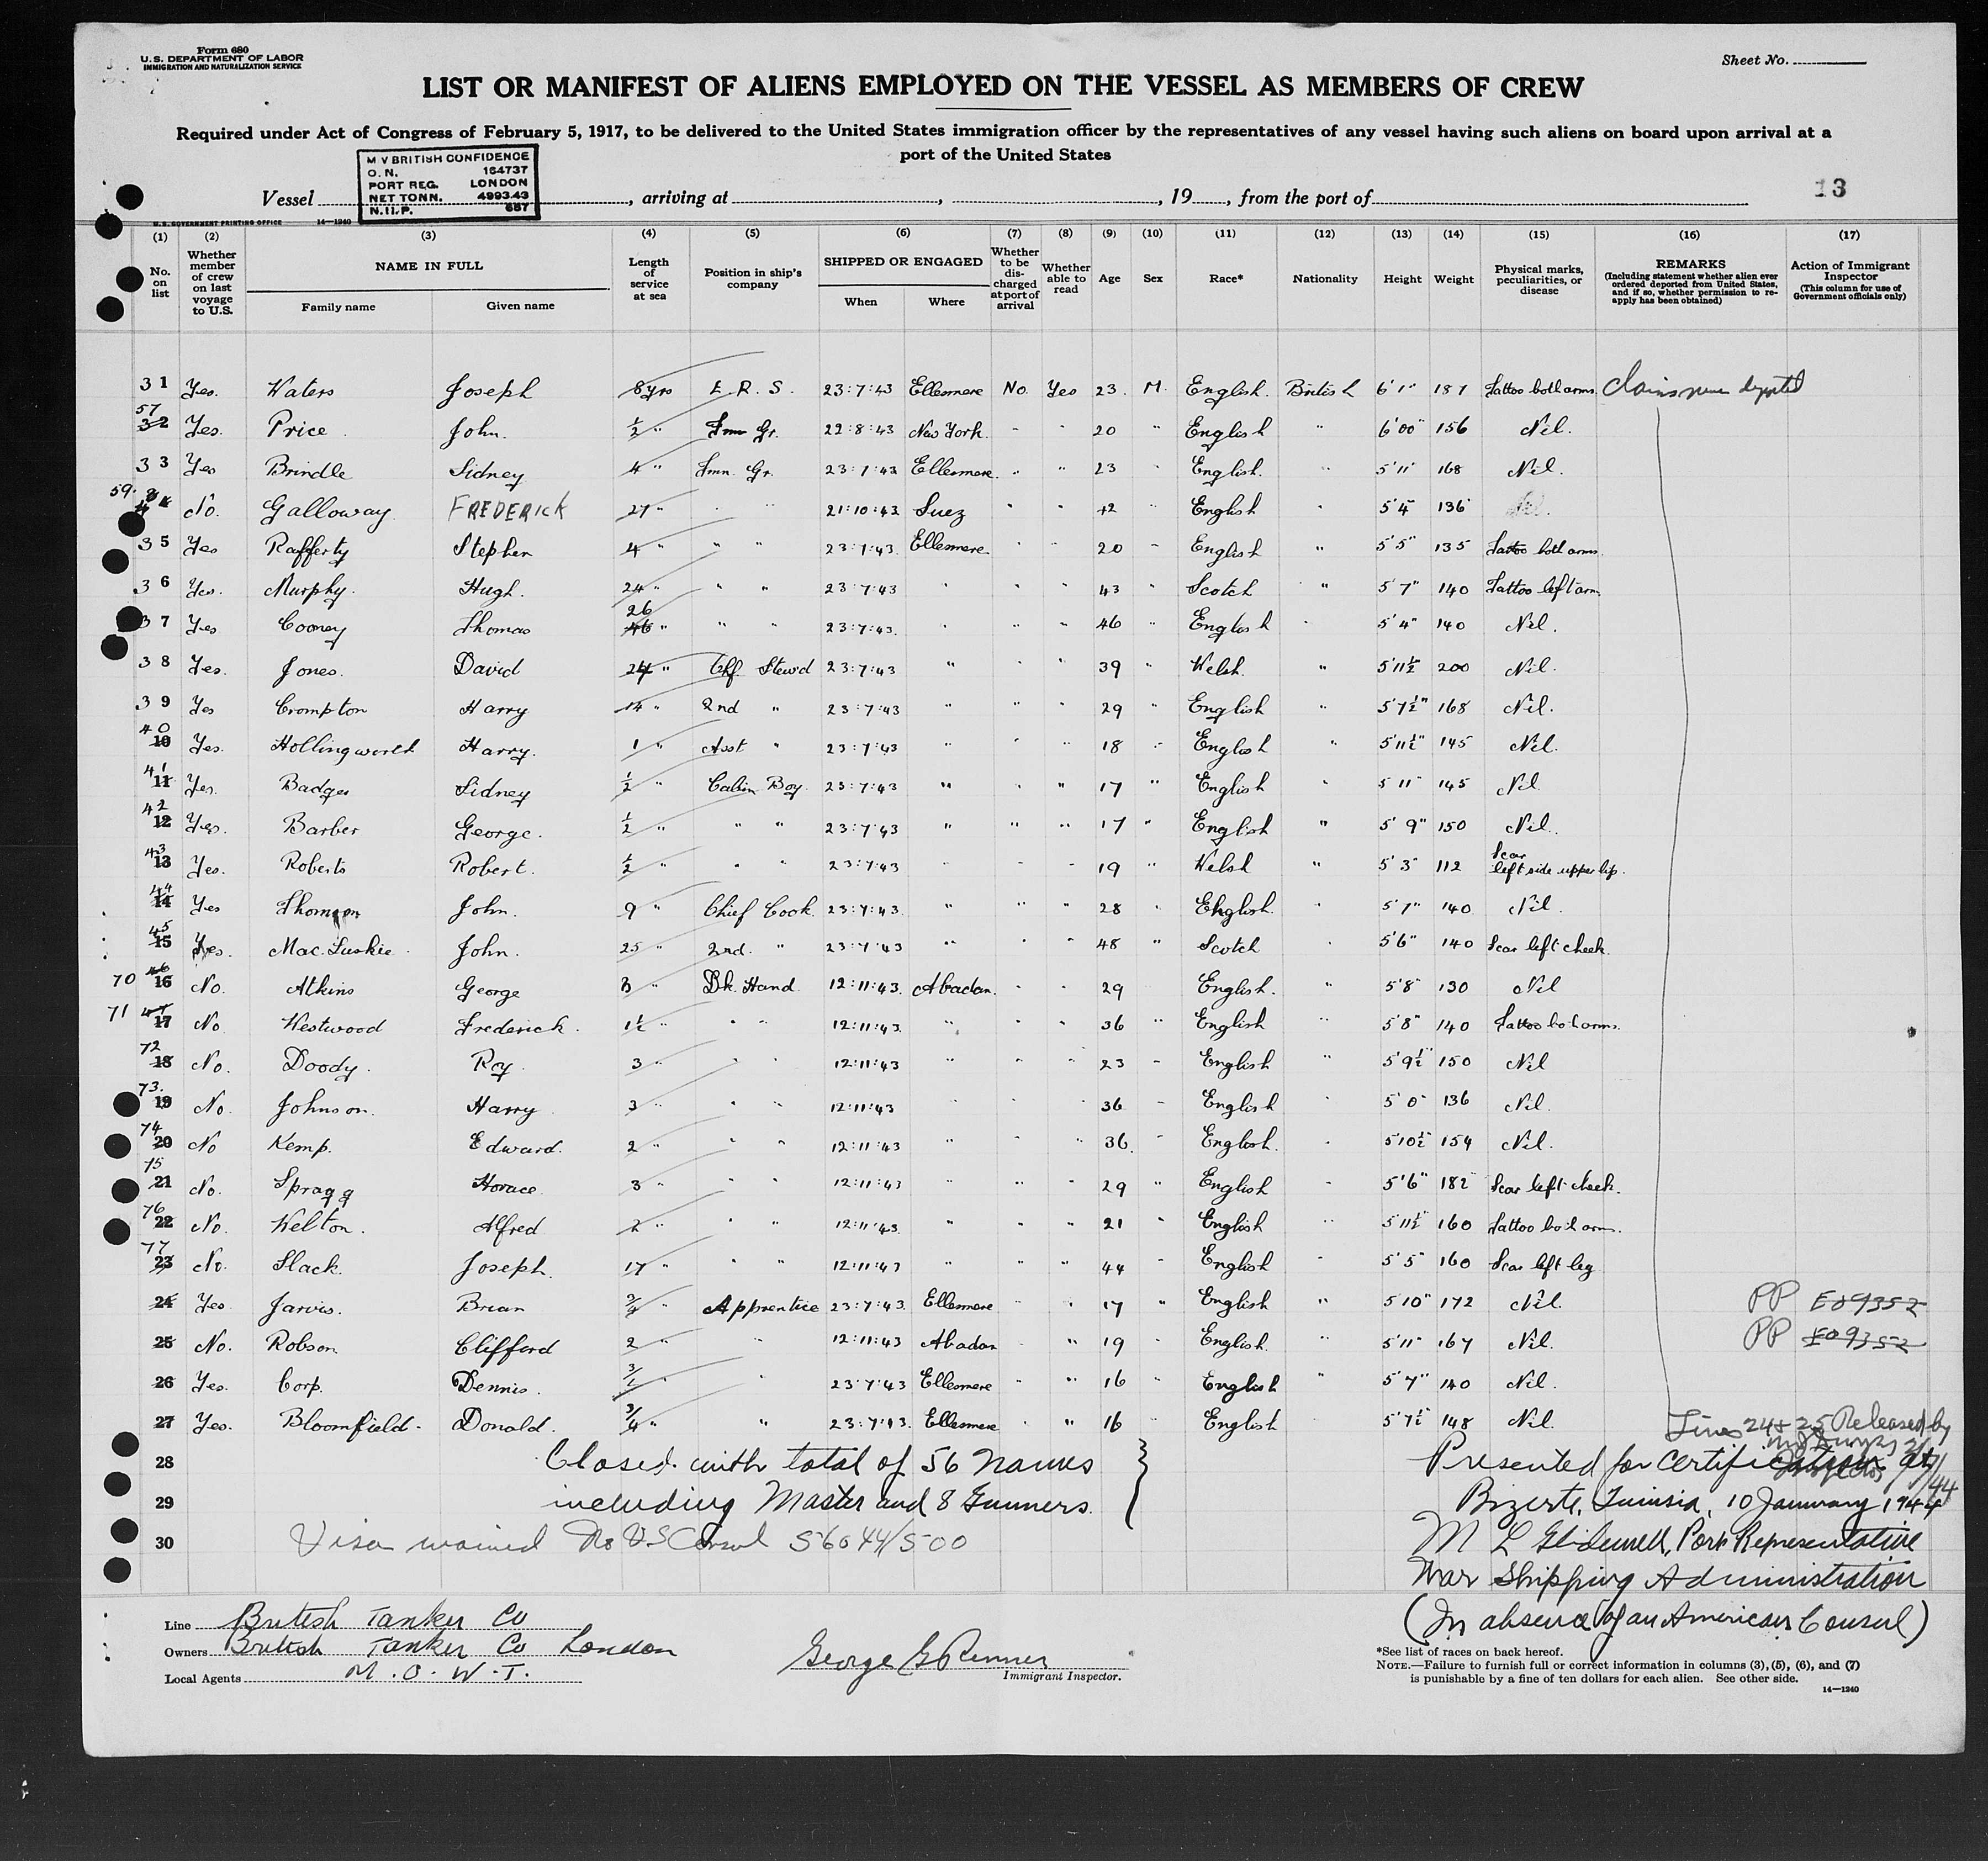 Form 680
U.S. DEPARTMENT OF LABOR
IMMIGRATION AND NATURALIZATION SERVICE
Sheet No.
LIST OR MANIFEST OF ALIENS EMPLOYED ON THE VESSEL AS MEMBERS OF CREW
Required under Act of Congress of February 5, 1917, to be delivered to the United States immigration officer by the representatives of any vessel having such aliens on board upon arrival at a
port of the United States
M V BRITISH CONFIDENCE
O.N. 164737
PORT REG. LONDON
NET TONN. 4993.43
N.H.P. 687
Vessel , arriving at , , 19 , from the port of
13
U.S. GOVERNMENT PRINTING OFFICE 14—1240
(1) (2) (3) (4) (5) (6) (7) (8) (9) (10) (11) (12) (13) (14) (15) (16) (17)
No. on list
Whether member of crew on last voyage to U.S.
NAME IN FULL
Family name Given name
Length of service at sea
Position in ship's company
SHIPPED OR ENGAGED
When Where
Whether to be discharged at port of arrival
Whether able to read
Age Sex Race* Nationality Height Weight
Physical marks, peculiarities, or disease
REMARKS
(Including statement whether alien ever ordered deported from United States, and if so, whether permission to reapply has been obtained)
Action of Immigrant Inspector
(This column for use of Government officials only)
31 Yes. Waters Joseph 8 yrs E. R. S. 23:7:43 Ellesmere No. Yes 23. M. English. British 6'1" 187 Tattoo both arms.
57 32 Yes. Price John. ½ " Fmn Gr. 22:8:43 New York. " " 20 " English " 6'00" 156 Nil.
33 Yes Brindle Sidney 4 " Fmn. Gr. 23:7:43 Ellesmere. " " 23 " English. " 5'11" 168 Nil.
59. No. Galloway FREDERICK 27 " " " 21:10:43 Suez " " 42 " English " 5'4" 136
35 Yes Rafferty Stephen 4 " " " 23:7:43. Ellesmere " " 20 " English " 5'5" 135 Tattoo both arms
36 Yes. Murphy. Hugh. 24 " " " 23:7:43 " " " 43 " Scotch " 5'7" 140 Tattoo left arm
37 Yes Cooney Thomas 26 46 " " " 23:7:43. " " " 46 " English " 5'4" 140 Nil.
38 Yes. Jones. David 24 " Chf. Stewd 23:7:43 " " " 39 " Welsh. " 5'11½ 200 Nil.
39 Yes Crompton Harry 14 " 2nd " 23:7:43 " " " 29 " English " 5'7½" 168 Nil.
40 10 Yes. Hollingworth Harry. 1 " Asst " 23:7:43 " " " 18 " English " 5'11½" 145 Nil.
41 11 Yes. Badger Sidney ½ " Cabin Boy. 23:7:43 " " " 17 " English " 5'11" 145 Nil
42 12 Yes. Barber George. ½ " " " 23:7:43 " " " 17 " English " 5'9" 150 Nil.
43 13 Yes. Roberts Robert. ½ " " " 23:7:43 " " " 19 " Welsh " 5'3" 112 Scar left side upper lip.
44 14 Yes Thomson John. 9 " Chief Cook. 23:7:43. " " " 28 " English. " 5'7" 140 Nil
45 15 Yes. Mac.Luskie John. 25 " 2nd. " 23:7:43 " " " 48 " Scotch " 5'6" 140 Scar left cheek.
70 46 16 No. Atkins George 3 " Dk. Hand 12:11:43. Abadan. " " 29 English. " 5'8" 130 Nil
71 47 17 No. Westwood Frederick. 1½ " " " 12:11:43. " " " 36 " English " 5'8" 140 Tattoo both arms.
72 18 No. Doody. Roy. 3 " " " 12:11:43 " " " 23 " English " 5'9½" 150 Nil
73. 19 No. Johnson. Harry 3 " " " 12:11:43 " " " 36 " English " 5'0" 136 Nil.
74 20 No Kemp. Edward. 2 " " " 12:11:43 " " " 36. " English. " 5'10½" 154 Nil.
75 21 No. Spragg Horace 3 " " " 12:11:43 " " " 29 " English " 5'6" 182 Scar left cheek.
76 22 No. Welton. Alfred 2 " " " 12:11:43. " " " 21 " English " 5'11½" 160 Tattoo both arm.
77 23 No. Slack. Joseph. 17 " " " 12:11:43 " " " 44 " English " 5'5" 160 Scar left leg
24 Yes. Jarvis. Brian ¾ " Apprentice 23:7:43. Ellesmere " " 17 " English " 5'10" 172 Nil. PP E09352
25 No. Robson Clifford 2 " " 12:11:43 Abadan " 19 " English. " 5'11" 167 Nil. PP E09352
26 Yes. Corp. Dennis. " " 23:7:43 Ellesmere " " 16 " English " 5'7" 140 Nil.
27 Yes. Bloomfield. Donald. ¾ " " 23:7:43. Ellesmere " " 16 " English " 5'7½ 148 Nil.
Lines 24 & 25 Released by
28 Closed with total of 56 names
29 including Master and 8 Gunners.
30 Visa waived No US Consul 56044/500
Presented for certification at
Bizerte, Tunisia, 10 January 1944
M L Port Representative
War Shipping Administration
(In absence of an American Consul)
Line British Tanker Co
Owners British Tanker Co London
Local Agents M.O.W.T.
George G Renner
Immigrant Inspector.
*See list of races on back hereof.
NOTE.—Failure to furnish full or correct information in columns (3), (5), (6), and (7)
is punishable by a fine of ten dollars for each alien. See other side.
14—1240